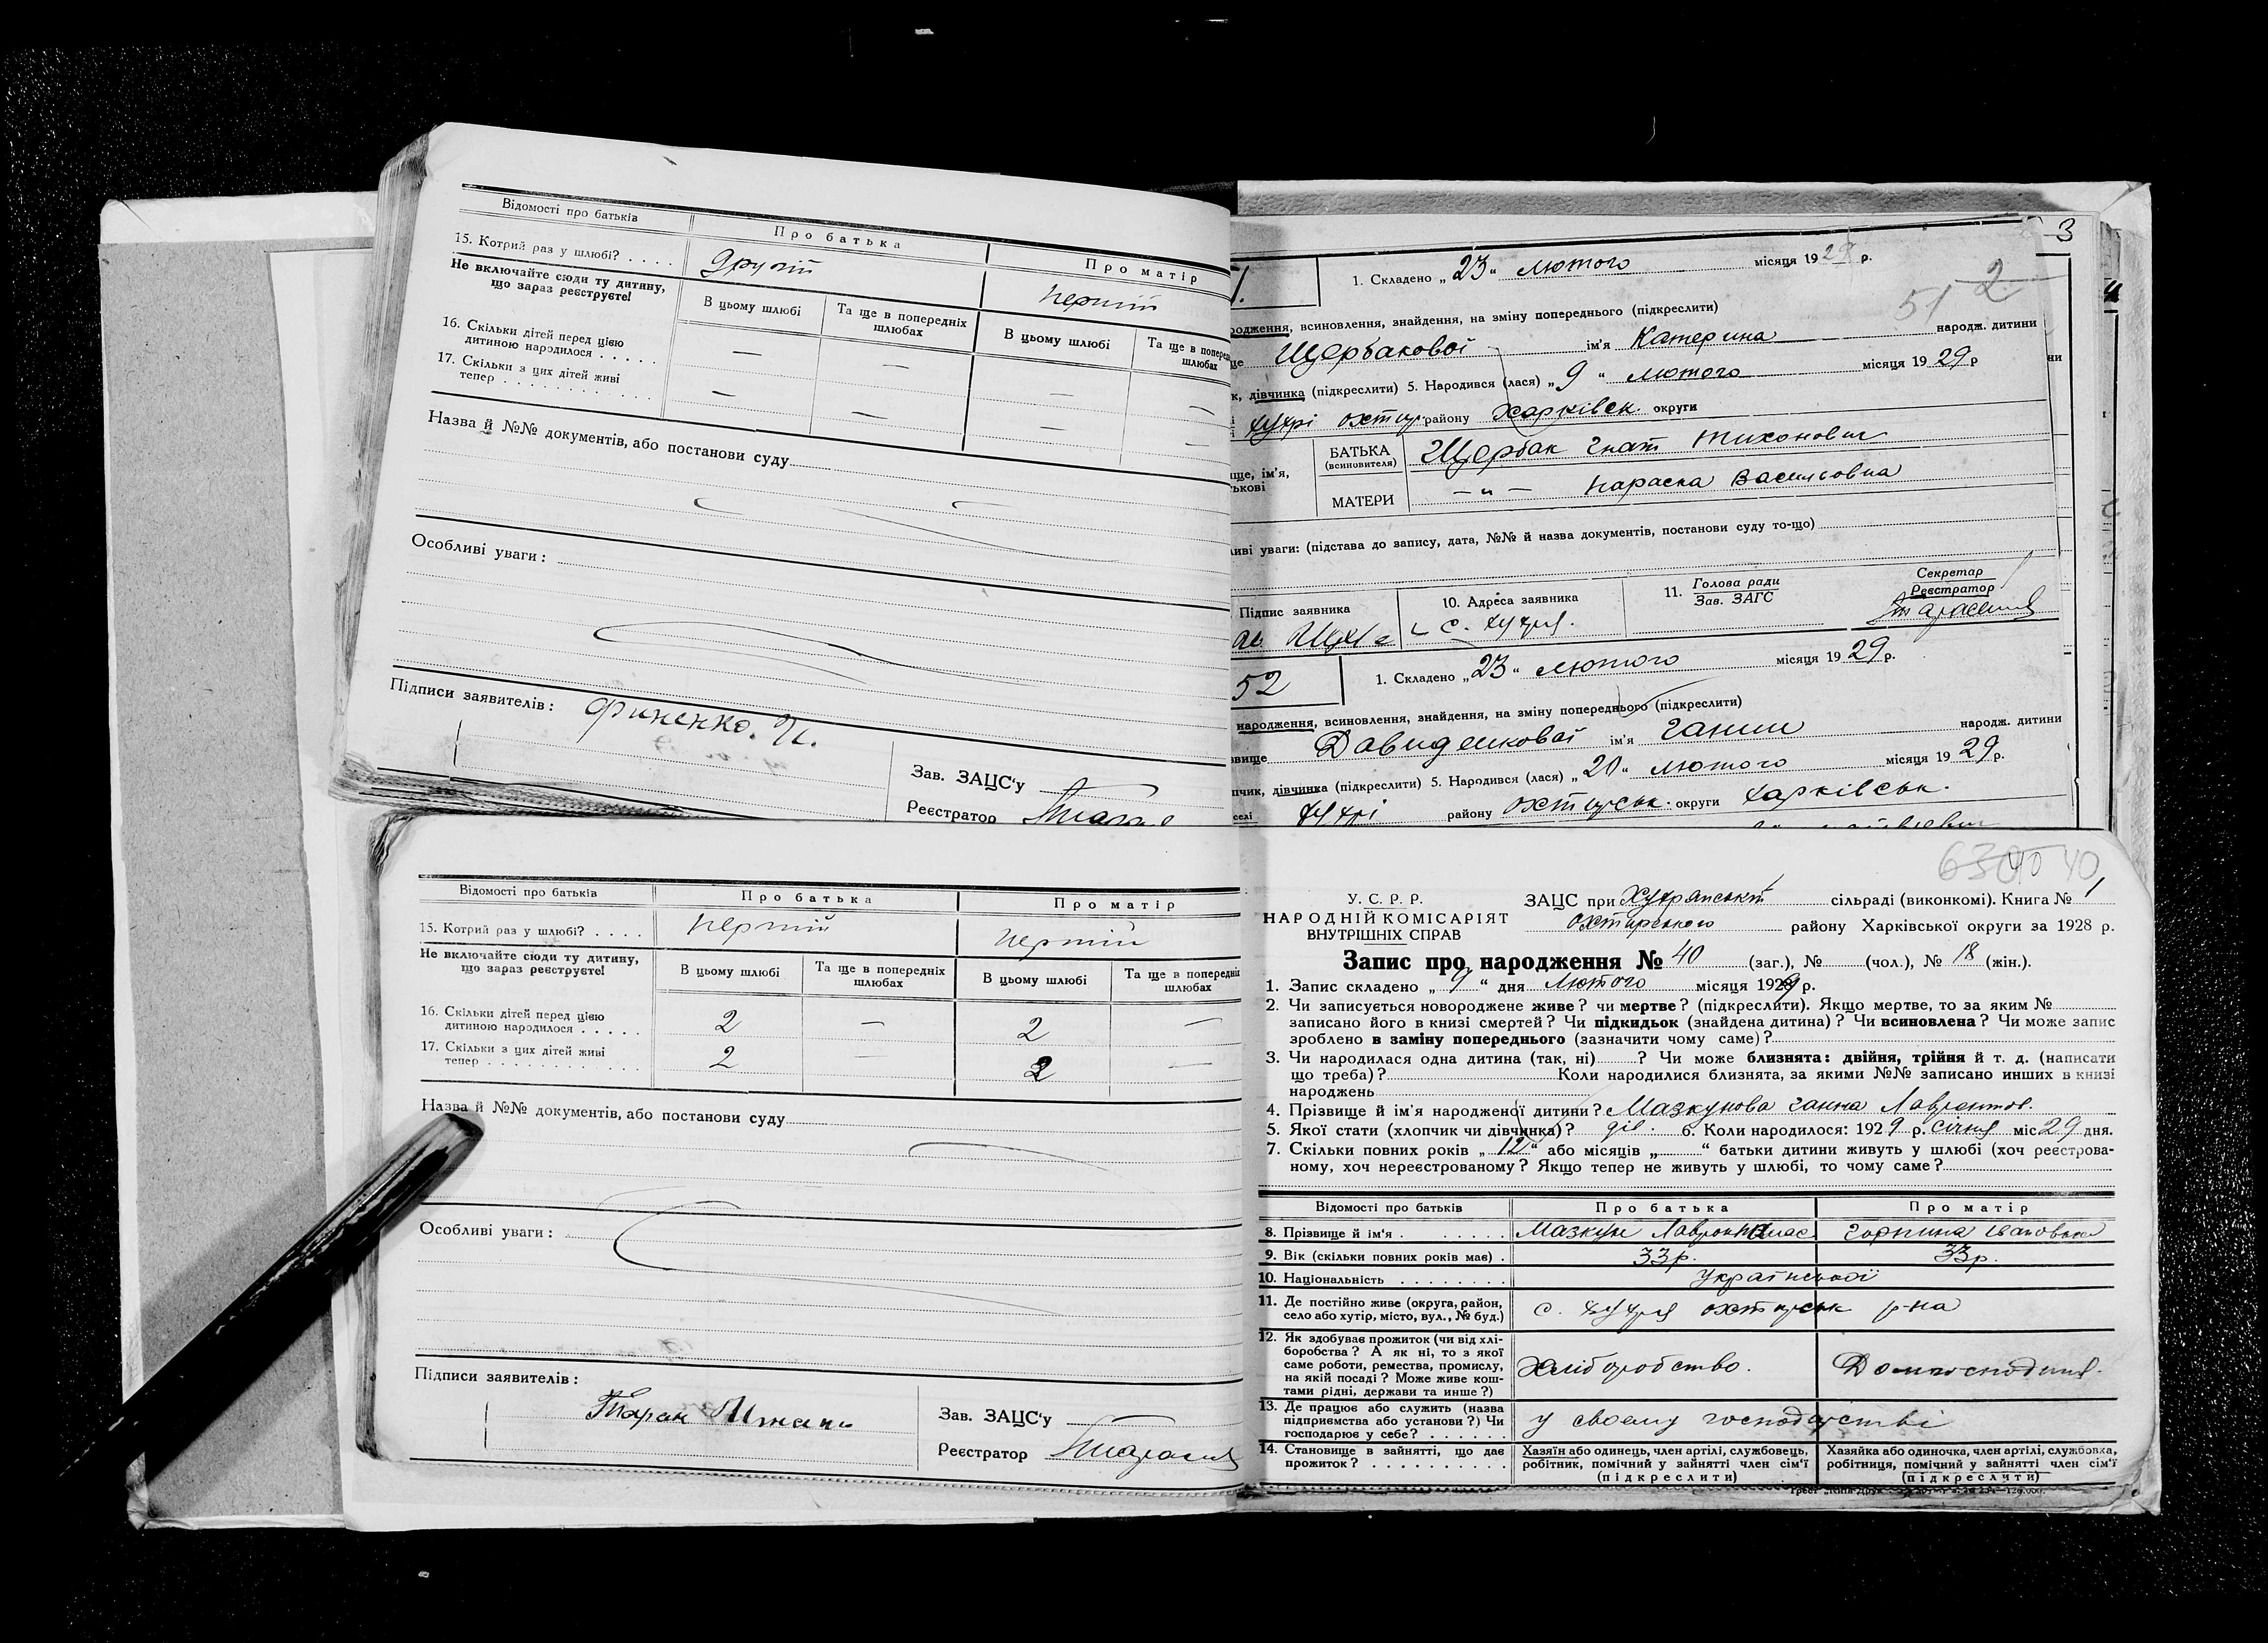 Відомості про батьків
Про батька
Про матір
15. Котрий раз у шлюбі? . . . .
другій
першій
Не включайте сюди ту дитину,
що зараз реєструєте!
В цьому шлюбі
Та ще в попередніх
шлюбах
В цьому шлюбі
Та ще в
шлюбах
16. Скільки дітей перед цією
дитиною народилося . . . . .
— —
17. Скільки з цих дітей живі
тепер . . . . . . . . . . . .
— — — —
Назва й №№ документів, або постанови суду
Особливі уваги:
Підписи заявителів: Финенко. И.
Зав. ЗАЦС'у
Реєстратор
3
1. Складено „23“ лютого місяця 1929 р.
2
51
всиновлення, знайдення, на зміну попереднього (підкреслити)
Щербакової ім'я Катерина народж. дитини
дівчинка (підкреслити) 5. Народився (лася) „9“ лютого місяця 1929 р
хухрі охтир. району Харківськ. округи
БАТЬКА
(всиновителя)
Щербак Гнат Тихонович
ім'я,
МАТЕРИ
—„— Параска Васильовна
уваги: (підстава до запису, дата, №№ й назва документів, постанови суду то-що)
Підпис заявника
10. Адреса заявника
11. Голова ради
Зав. ЗАГС
Секретар
Реєстратор
с. хухря.
52
1. Складено „23“ лютого місяця 1929 р.
народження, всиновлення, знайдення, на зміну попереднього (підкреслити)
Давиденкової ім'я Ганни народж. дитини
дівчинка (підкреслити) 5. Народився (лася) „20“ лютого місяця 1929 р.
хухрі району охтирськ. округи харківськ.
Відомості про батьків
Про батька
Про матір
15. Котрий раз у шлюбі? . . . .
першій
першій
Не включайте сюди ту дитину,
що зараз реєструєте!
В цьому шлюбі
Та ще в попередніх
шлюбах
В цьому шлюбі
Та ще в попередніх
шлюбах
16. Скільки дітей перед цією
дитиною народилося . . . . .
2 — 2 —
17. Скільки з цих дітей живі
тепер . . . . . . . . . . . .
2 — 2 —
Назва й №№ документів, або постанови суду
Особливі уваги:
Підписи заявителів:
Зав. ЗАЦС'у
Реєстратор
40
У. С. Р. Р.
НАРОДНІЙ КОМІСАРІЯТ
ВНУТРІШНІХ СПРАВ
ЗАЦС при Хухрянській сільраді (виконкомі). Книга № 1
охтирського району Харківської округи за 1928 р.
Запис про народження № 40 (заг.), № (чол.), № 18 (жін.).
1. Запис складено „9“ дня лютого місяця 1929 р.
2. Чи записується новороджене живе? чи мертве? (підкреслити). Якщо мертве, то за яким №
записано його в книзі смертей? Чи підкидьок (знайдена дитина)? Чи всиновлена? Чи може запис
зроблено в заміну попереднього (зазначити чому саме)?
3. Чи народилася одна дитина (так, ні)? Чи може близнята: двійня, трійня й т. д. (написати
що треба)? Коли народилися близнята, за якими №№ записано инших в книзі
народжень
4. Прізвище й ім'я народженої дитини? Мазкунова Ганна Лаврентов.
5. Якої стати (хлопчик чи дівчинка)? дів. 6. Коли народилося: 1929 р. січня міс 29 дня.
7. Скільки повних років „12“ або місяців „ “ батьки дитини живуть у шлюбі (хоч реєстрова-
ному, хоч нереєстрованому? Якщо тепер не живуть у шлюбі, то чому саме?
Відомості про батьків
Про батька
Про матір
8. Прізвище й ім'я . . . . . . . .
Мазкун
Горпина Івановна
9. Вік (скільки повних років має) .
33 р.
33 р.
10. Національність . . . . . . . .
української
11. Де постійно живе (округа, район,
село або хутір, місто, вул., № буд.)
с. хухря охтирськ р-на
12. Як здобуває прожиток (чи від хлі-
боробства? А як ні, то з якої
саме роботи, ремества, промислу,
на якій посаді? Може живе кош-
тами рідні, держави та инше?)
Хліборобство.
Домгосподиня.
13. Де працює або служить (назва
підприємства або установи?) Чи
господарює у себе? . . . . . .
у своему господарстві
14. Становище в зайнятті, що дає
прожиток? . . . . . . . . . .
Хазяїн або одинець, член артілі, службовець,
робітник, помічний у зайнятті член сім'ї
(підкреслити)
Хазяйка або одиночка, член артілі, службовка,
робітниця, помічний у зайнятті член сім'ї
(підкреслити)